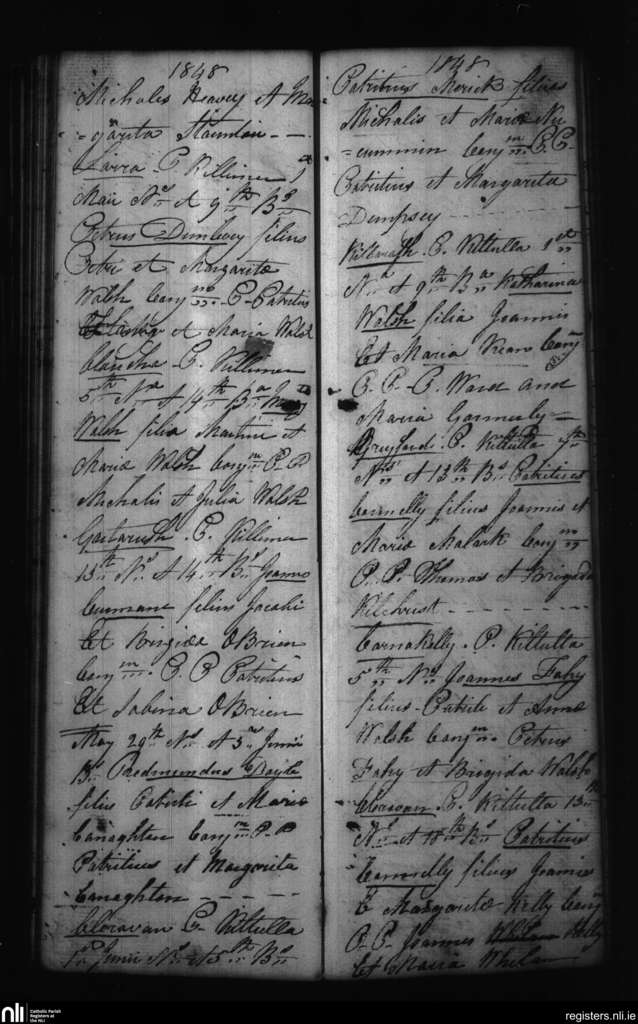 1848
Michalis Heavey et Mar
=garita Staunton
Larra P Killimer 1st
Maii Ns et 9th Bs
Petrus Dunlevey filius
Petri et Margarita
Walsh Conjm P. Patritius
et Maria Walsh
P. Killimer
5th Na et 14th Ba
Walsh filia Martini et
Maria Walsh Conjm P. P
Michalis et Julia Walsh
P. Killimer
13th Ns et 14th Bs Joannes
Cunnane filius Jacobi
Et Brigida OBrien
Conjm P. P Patritius
Et Sabina OBrien
May 29th Ns et 3 Junii
Bs Raedmundus Boyle
filius Patricii et Maria
Canaghton Conjm P. P
Patritius et Margarita
Canaghton
Cloravan P Kiltulla
1st Junii Ns et 5th Bs
1848
Patritius Merick filius
Michalis et Maria Mc
=cummin Conjm P. P.
Patritius et Margarita
Dempsey
P. Kiltulla 1st
Na et 9th Ba Katharina
Walsh filia Joannis
Et Maria Kean Conj
P. P. P. Ward and
Maria Gormerly
Greyford P. Kiltulla
Ns et 13th Bs Patritius
Connelly filius Joannis et
Maria Malark Conjm
P. P. Thomas et Brigida
Kilchrist
Carnakelly. P. Kiltulla
5th Ns Joannes Fahy
filius Patricii et Anna
Walsh Conjm Petrus
Fahy et Brigida Walsh
Cloravan P. Kiltulla 13th
Ns et 18th Bs Patritius
Connelly filius Joannis
Et Margarita Kelly Conj
P. P. Joannes Whelan Kelly
Et Maria Whelan
nli
Catholic Parish
Registers at
the NLI
registers.nli.ie